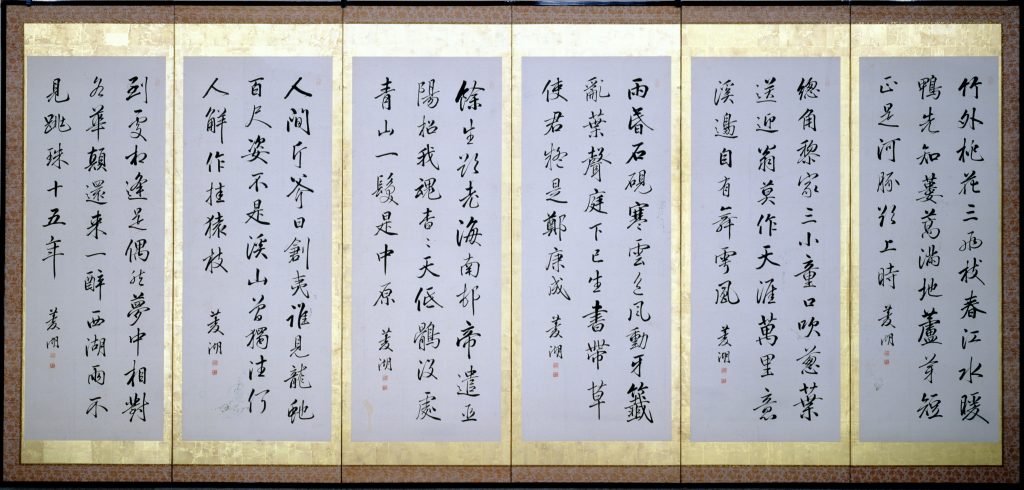 竹外桃花三兩枝春江水暖
鴨先知蔞蒿滿地蘆芽短
正是河豚欲上時 菱湖
總角黎家三小童口吹蔥葉
送迎翁莫作天涯萬里意
溪邊自有舞雩風 菱湖
雨昏石硯寒雲色風動牙籤
亂葉聲庭下已生書帶草
使君疑是鄭康成 菱湖
餘生欲老海南邨帝遣巫
陽招我魂杳〻天低鶻沒處
青山一髮是中原 菱湖
人間斤斧日創夷誰見龍蛇
百尺姿不是溪山曾獨往何
人解作挂猿枝 菱湖
到處相逢是偶然夢中相對
各華顛還来一醉西湖雨不
見跳珠十五年 菱湖